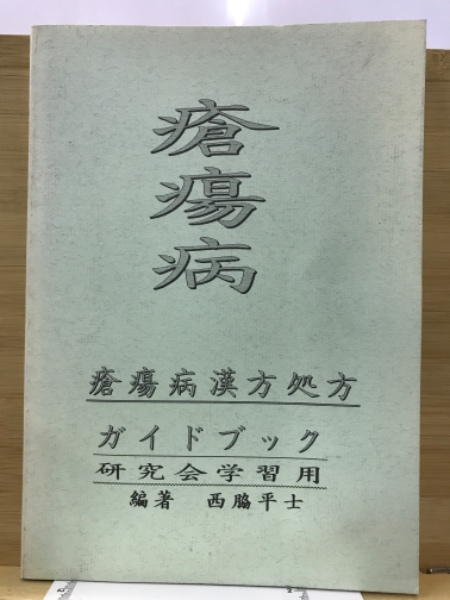 瘡瘍病
瘡瘍病漢方処方
ガイドブック
研究会学習用
編著 西脇平士